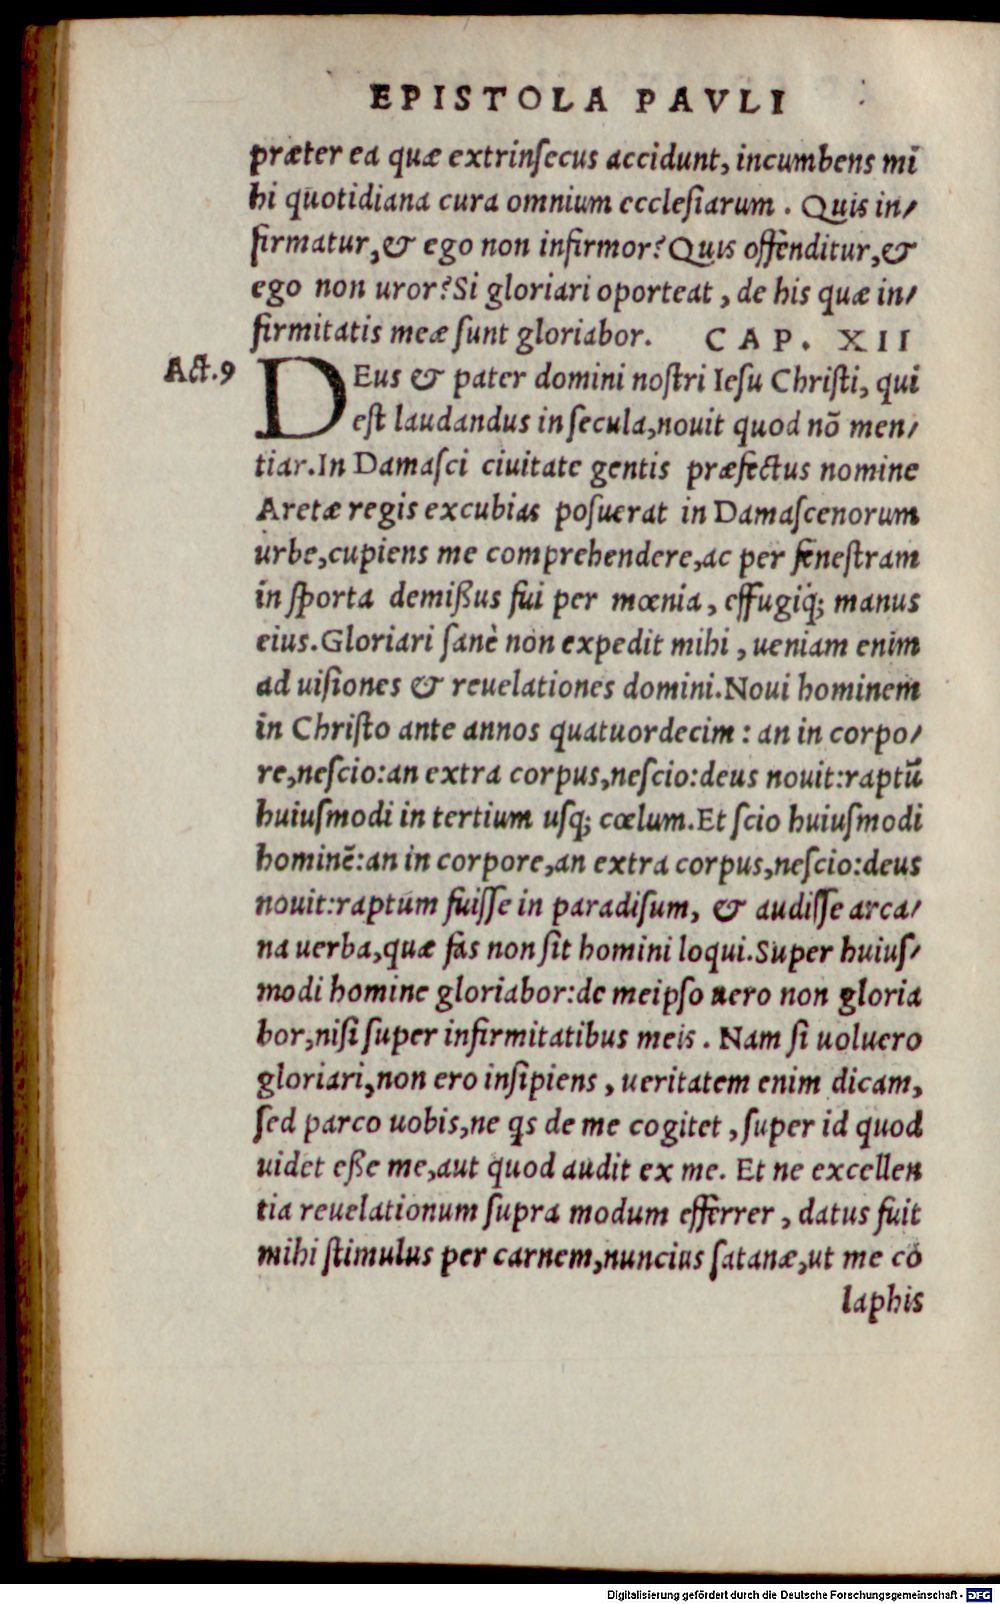 EPISTOLA PAVLI
præter ea quæ extrinſecus accidunt, incumbens mi
hi quotidiana cura omnium eccleſiarum . Quis in/
firmatur,& ego non infirmor? Quis offenditur,&
ego non uror? Si gloriari oporteat , de his quæ in/
firmitatis meæ ſunt gloriabor. CAP. XII
Act.9
DEus & pater domini noſtri Ieſu Chriſti, qui
eſt laudandus in ſecula,nouit quod nõ men/
tiar.In Damaſci ciuitate gentis præfectus nomine
Aretæ regis excubias poſuerat in Damaſcenorum
urbe,cupiens me comprehendere,ac per feneſtram
in ſporta demißus fui per mœnia , effugiq́; manus
eius.Gloriari ſanè non expedit mihi , ueniam enim
ad uiſiones & reuelationes domini.Noui hominem
in Chriſto ante annos quatuordecim : an in corpo/
re,neſcio:an extra corpus,neſcio:deus nouit:raptũ
huiuſmodi in tertium uſq; cœlum.Et ſcio huiuſmodi
hominẽ:an in corpore,an extra corpus,neſcio:deus
nouit:raptum fuiſſe in paradiſum, & audiſſe arca/
na uerba,quæ fas non ſit homini loqui.Super huiuſ/
modi homine gloriabor:de meipſo uero non gloria
bor,niſi ſuper infirmitatibus meis . Nam ſi uoluero
gloriari,non ero inſipiens , ueritatem enim dicam,
ſed parco uobis,ne qs de me cogitet , ſuper id quod
uidet eße me,aut quod audit ex me. Et ne excellen
tia reuelationum ſupra modum efferrer , datus fuit
mihi ſtimulus per carnem,nuncius ſatanæ,ut me co
laphis
Digitalisierung gefördert durch die Deutsche Forschungsgemeinschaft - DFG